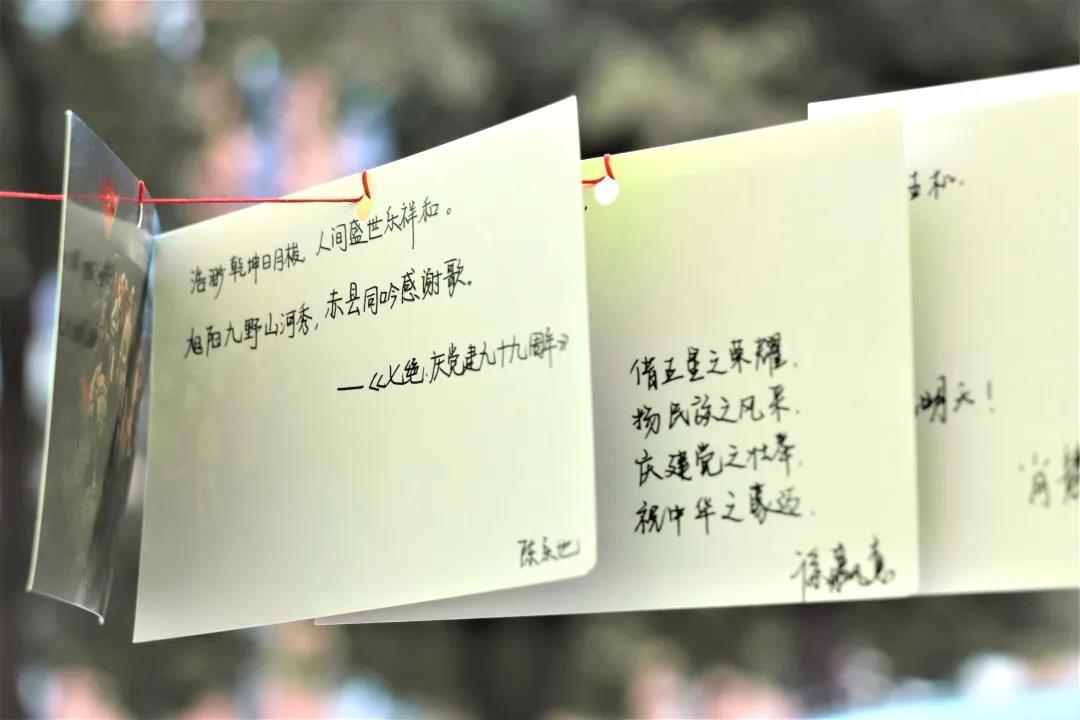 浩渺乾坤日月梭，人间盛世乐祥和。
旭阳九野山河秀，赤县同吟感谢歌。
—《七绝·庆党建九十九周年》
陈永也
借五星之荣耀，
扬民族之风采，
庆建党之壮举，
祝中华之豪迈.
徐赢意
明天！
肖